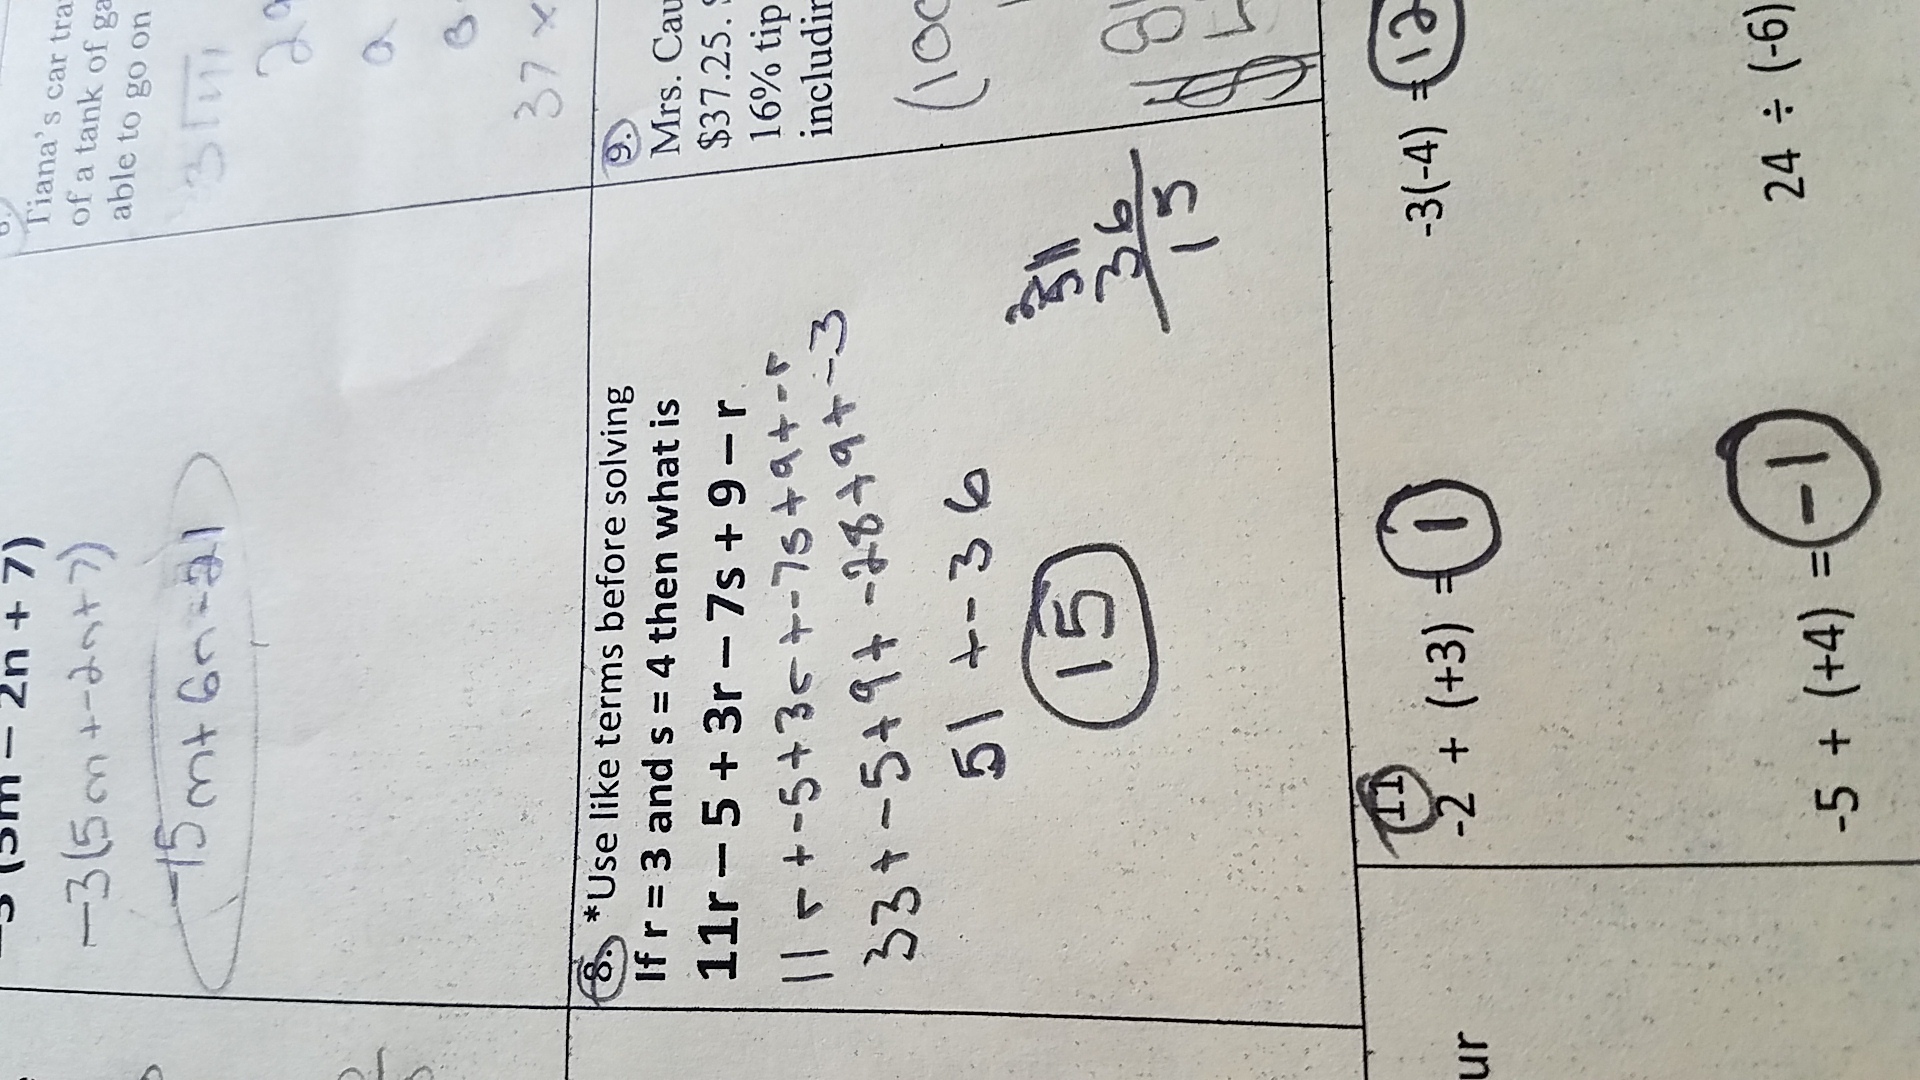 -3 (5m – 2n + 7)
-3(5m+-2n+7)
-15m+6n-21
Tiana's car tra
of a tank of ga
able to go on
3
29
a
37 x
8. *Use like terms before solving
If r = 3 and s = 4 then what is
11r – 5 + 3r – 7s + 9 – r
11r+-5+3r+-7s+9+-r
33+-5+9+-28+9+-3
51+-36
15
51
36
15
9.
Mrs. Cau
$37.25. S
16% tip
includin
(100
$
11
-2 + (+3) = 1
-3(-4) = 12
-5 + (+4) = -1
24 ÷ (-6)
ur